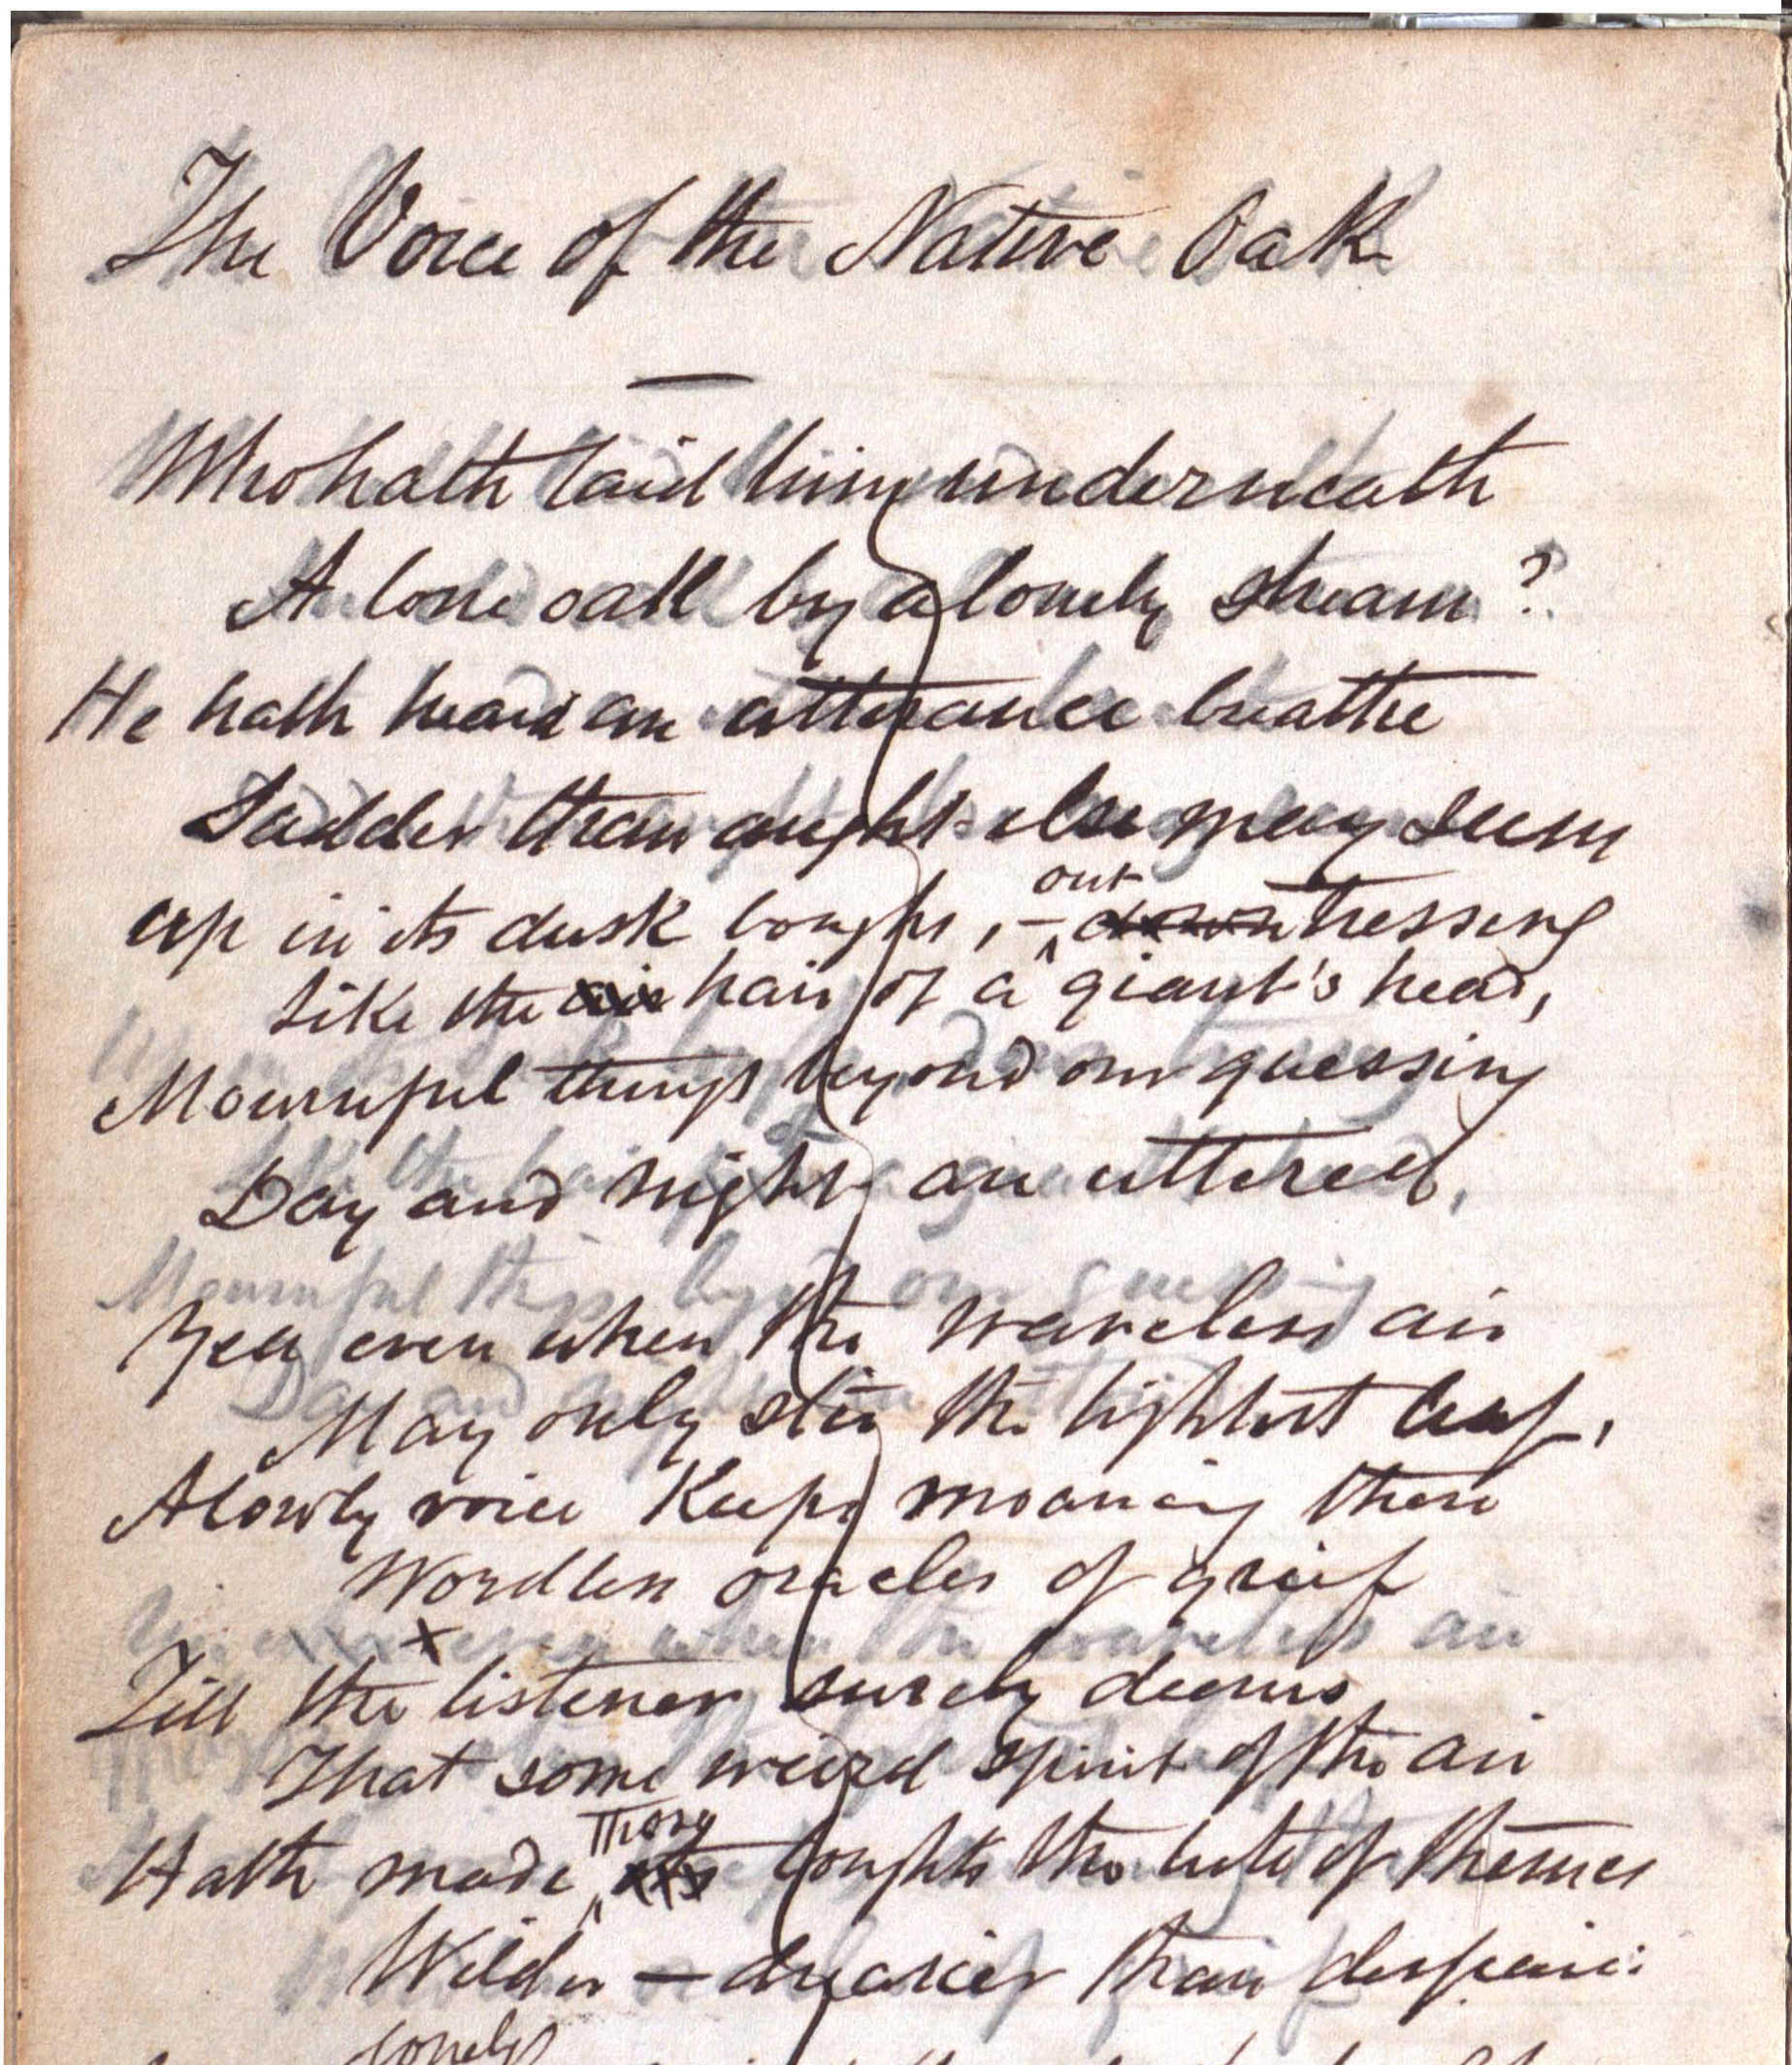 The Voice of the Native Oak
Who hath laid him underneath
A lone oak by a lonely stream?
He hath heard an utterance breathe
Sadder than aught else may seem
out
Up in its dusk boughs, – down tressing
Like the air hair of a giant's head,
Mournful things beyond our guessing
Day and night are uttered,
Yea even when the waveless air
May only stir the lightest leaf,
A lowly voice keeps moaning there
Wordless oracles of grief
x
Till the listener surely deems
That some weird spirit of the air
Those
Hath made its boughs the lute of themes
Wilder – drearier than despair:
lonely